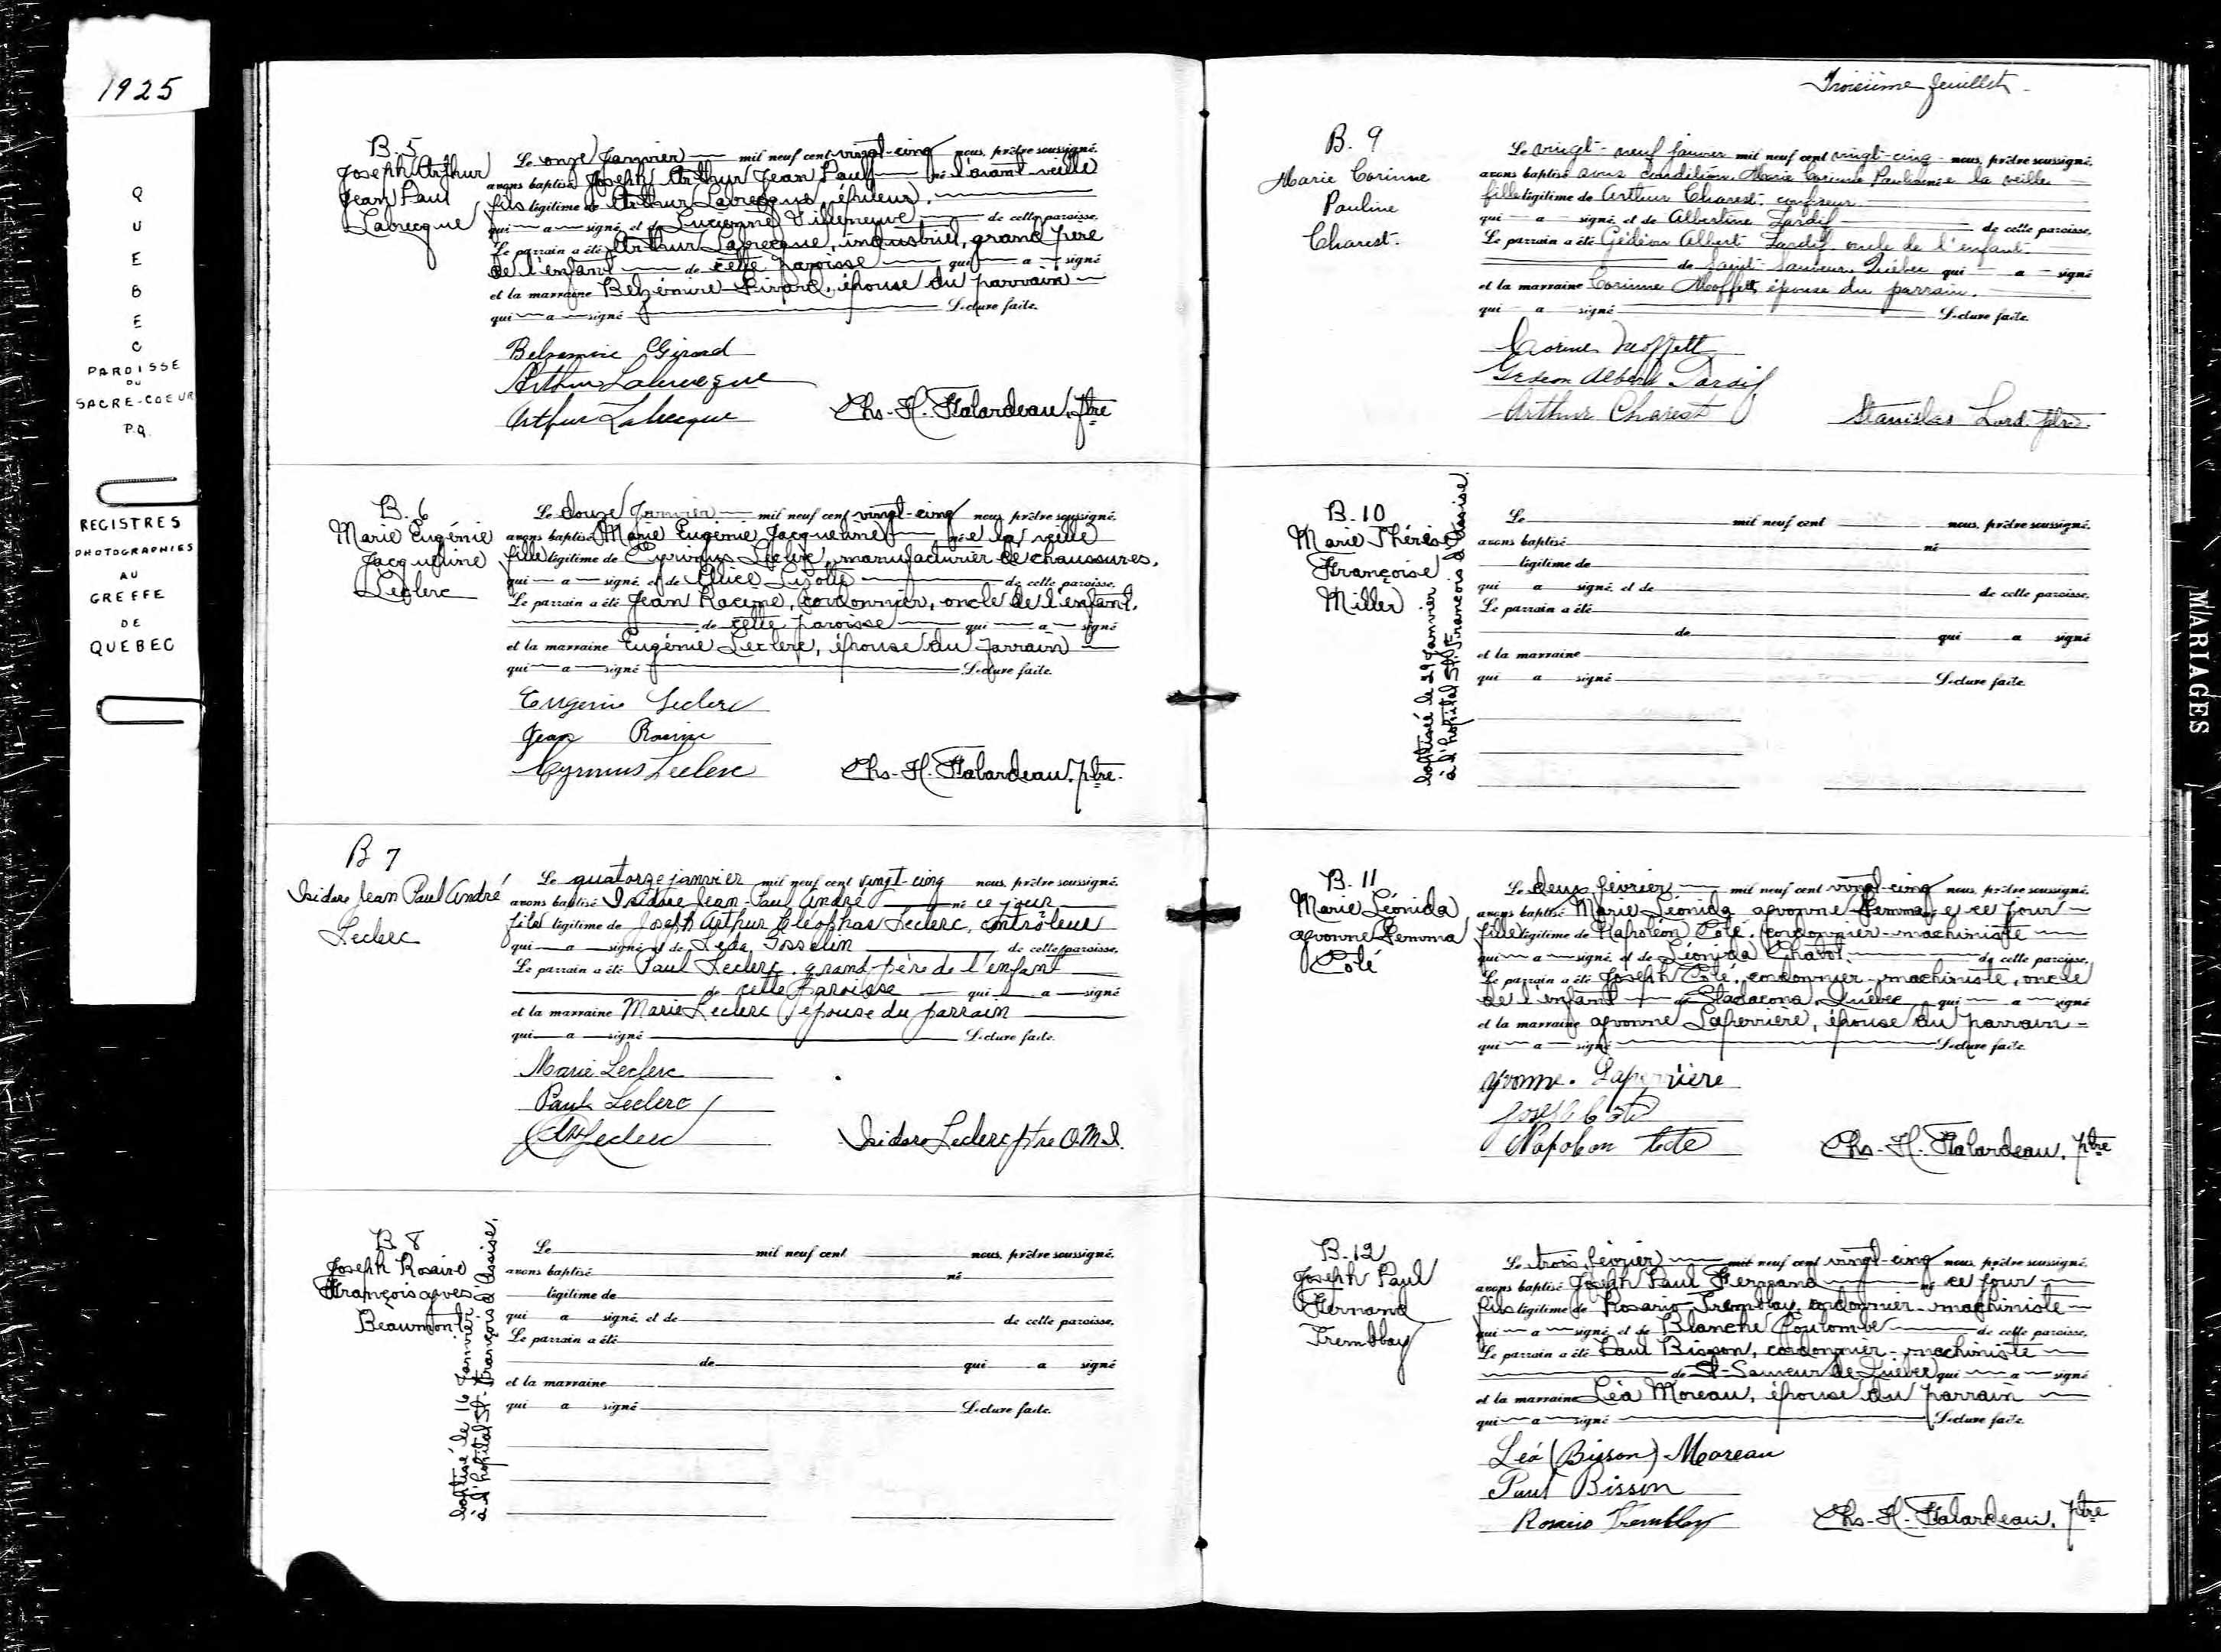 1925
QUEBEC
PAROISSE
DU
SACRE-COEUR
P.Q.
REGISTRES
PHOTOGRAPHIES
AU
GREFFE
DE
QUEBEC
B. 5
Joseph Arthur
Jean Paul
Labrecque
Le onze Janvier mil neuf cent vingt-cinq nous, prêtre soussigné,
avons baptisé Joseph Arthur Jean Paul né l'avant-veille
fils légitime de Arthur Labrecque,
qui a signé, et de Lucienne Villeneuve de cette paroisse.
Le parrain a été Arthur Labrecque, industriel, grand père
de l'enfant de cette paroisse qui a signé
et la marraine Belzémire Girard, épouse du parrain
qui a signé Lecture faite.
Belzemire Girard
Arthur Labrecque
Arthur Labrecque
Chs-H. Falardeau, ptre
B. 6
Marie Eugénie
Jacqueline
Leclerc
Le douze Janvier mil neuf cent vingt-cinq nous, prêtre soussigné,
avons baptisé Marie Eugénie Jacqueline née la veille
fille légitime de Cyrinus Leclerc, manufacturier de chaussures,
qui a signé, et de Alice Lizotte de cette paroisse.
Le parrain a été Jean Racine, cordonnier, oncle de l'enfant,
de cette paroisse qui a signé
et la marraine Eugénie Leclerc, épouse du parrain
qui a signé Lecture faite.
Eugenie Leclerc
Jean Racine
Cyrinus Leclerc
Chs-H. Falardeau, ptre.
B 7
Isidore Jean Paul André
Leclerc
Le quatorze janvier mil neuf cent vingt-cinq nous, prêtre soussigné,
avons baptisé Isidore Jean-Paul André né ce jour
fils légitime de Joseph Arthur Cléophas Leclerc, contrôleur
qui a signé, et de Léda Gosselin de cette paroisse.
Le parrain a été Paul Leclerc, grand-père de l'enfant
de cette paroisse qui a signé
et la marraine Marie Leclerc épouse du parrain
qui a signé Lecture faite.
Marie Leclerc
Paul Leclerc
Leclerc
Isidore Leclerc ptre O.M.I.
B. 8
Joseph Rosaire
François Yves
Beaumont
baptisé le 16 Janvier
à l'hôpital St-François d'Assise.
Le mil neuf cent nous, prêtre soussigné,
avons baptisé né
légitime de
qui a signé, et de de cette paroisse.
Le parrain a été
de qui a signé
et la marraine
qui a signé Lecture faite.
Troisième feuillet
B. 9
Marie Corinne
Pauline
Charest.
Le vingt-neuf janvier mil neuf cent vingt-cinq nous, prêtre soussigné,
avons baptisé sous condition Marie Corinne Pauline née la veille
fille légitime de Arthur Charest,
qui a signé, et de Albertine Tardif de cette paroisse.
Le parrain a été Gédéon Albert Tardif oncle de l'enfant
de Saint-Sauveur, Québec qui a signé
et la marraine Corinne Moffett, épouse du parrain.
qui a signé Lecture faite.
Corinne Moffett
Gedeon Albert Tardif
Arthur Charest
Stanislas Lord. ptre.
B. 10
Marie Thérèse
Françoise
Miller
baptisée le 29 Janvier
à l'hôpital St-François d'Assise.
Le mil neuf cent nous, prêtre soussigné,
avons baptisé né
légitime de
qui a signé, et de de cette paroisse.
Le parrain a été
de qui a signé
et la marraine
qui a signé Lecture faite
B. 11
Marie Léonida
Yvonne Gemma
Côté
Le deux février mil neuf cent vingt-cinq nous, prêtre soussigné,
avons baptisé Marie Léonida Yvonne Gemma née ce jour
fille légitime de Napoléon Côté, cordonnier-machiniste
qui a signé, et de Léonida Chabot, de cette paroisse.
Le parrain a été Joseph Côté, cordonnier-machiniste, oncle
de l'enfant de Stadacona, Québec qui a signé
et la marraine Yvonne Laperrière, épouse du parrain
qui a signé Lecture faite
Yvonne. Laperrière
Joseph Coté
Napoleon Cote
Chs-H. Falardeau, ptre
B. 12
Joseph Paul
Fernand
Tremblay
Le trois février mil neuf cent vingt-cinq nous, prêtre soussigné,
avons baptisé Joseph Paul Fernand né ce jour
fils légitime de Rosario Tremblay, cordonnier-machiniste
qui a signé, et de Blanche Coulombe de cette paroisse.
Le parrain a été Paul Bisson, cordonnier-machiniste
de St-Sauveur de Québec qui a signé
et la marraine Léa Moreau, épouse du parrain
qui a signé Lecture faite.
Léa (Bisson) Moreau
Paul Bisson
Rosario Tremblay
Chs-H. Falardeau, ptre
MARIAGES